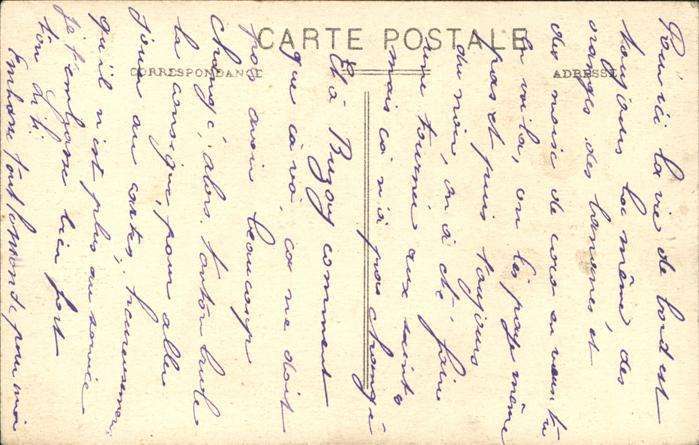 CARTE POSTALE
CORRESPONDANCE
ADRESSE
Pour ici la vie de bord est
toujours la même, des
oranges des bananes et
des noix de coco en veux tu
en voila, on les paye même
pas et puis toujours
du noir, on a été faire
une tournée aux saints
mais ça n'a pas changé
Et à Buzoy comment
que ça va, ça ne doit
pas avoir beaucoup
changé, alors tonton
la consigne, pour aller
jouer au cartes, heureusement
qu'il n'est plus au service
Je t'embrasse bien fort
ton
Embrasse tout le monde pour moi